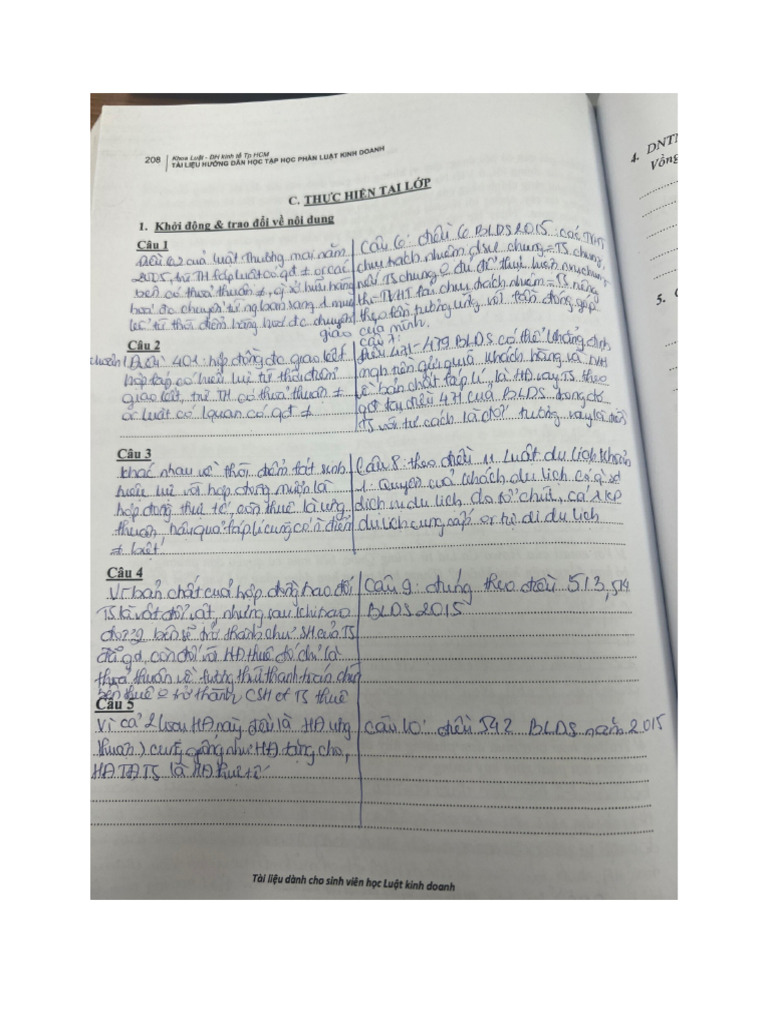 208
Khoa Luật - ĐH kinh tế Tp HCM
TÀI LIỆU HƯỚNG DẪN HỌC TẬP HỌC PHẦN LUẬT KINH DOANH
C. THỰC HIỆN TẠI LỚP
1. Khởi động & trao đổi về nội dung
Câu 1
Điều 62 của luật Thương mại năm
2005, trừ TH pháp luật có qđ ≠ or các
bên có thoả thuận ≠, q sở hữu hàng
hoá đc chuyển từ ng bán sang ng mua
kể từ thời điểm hàng hoá đc chuyển
giao
Câu 2
Điều 401: hợp đồng đc giao kết
hợp pháp có hiệu lực từ thời điểm
giao kết, trừ TH có thoả thuận ≠
or luật có lquan có qđ ≠
Câu 3
khác nhau về thời điểm phát sinh
hiệu lực vs hợp đồng mượn là
hợp đồng thực tế, còn thuê là ưng
thuận, hậu quả pháp lí cũng có điểm
≠ biệt
Câu 4
Vì bản chất của hợp đồng trao đổi
TS là vật đổi vật, nhưng sau khi trao
đổi 2 bên sẽ trở thành chủ SH của TS
đã gd, còn đối vs HĐ thuê đó chỉ là
thoả thuận về phương thức thanh toán chứ
bên thuê ko trở thành CSH of TS thuê
Câu 5
Vì cả 2 loại HĐ này đều là HĐ ưng
thuận cũng giống như HĐ tặng cho,
HĐ TATS là HĐ thực tế
Câu 6: điều 6 BLDS 2015: các TVHT
chịu trách nhiệm dsự chung = TS chung,
nếu TS chung ko đủ để thực hiện nvụ chung
thì TVHT phải chịu trách nhiệm = TS riêng
theo phần tương ứng với phần đóng góp
của mình.
câu 7:
Điều 471-479 BLDS có thể khẳng định
rằng tiền gửi của khách hàng và NH
về bản chất pháp lí, là HĐ vay TS theo
qđ tại điều 471 của BLDS trong đó
TS với tư cách là đối tượng vay là tiền
Câu 8: theo điều 11 luật du lịch khoản
1: Quyền của khách du lịch có q sd
dịch vụ du lịch do tổ chức, cá nhân KD
du lịch cung cấp or tự đi du lịch
Câu 9: đúng theo điều 513, 514
BLDS 2015
câu 10: điều 542 BLDS năm 2015
4. DNTN
Vồng
5.
Tài liệu dành cho sinh viên học Luật kinh doanh